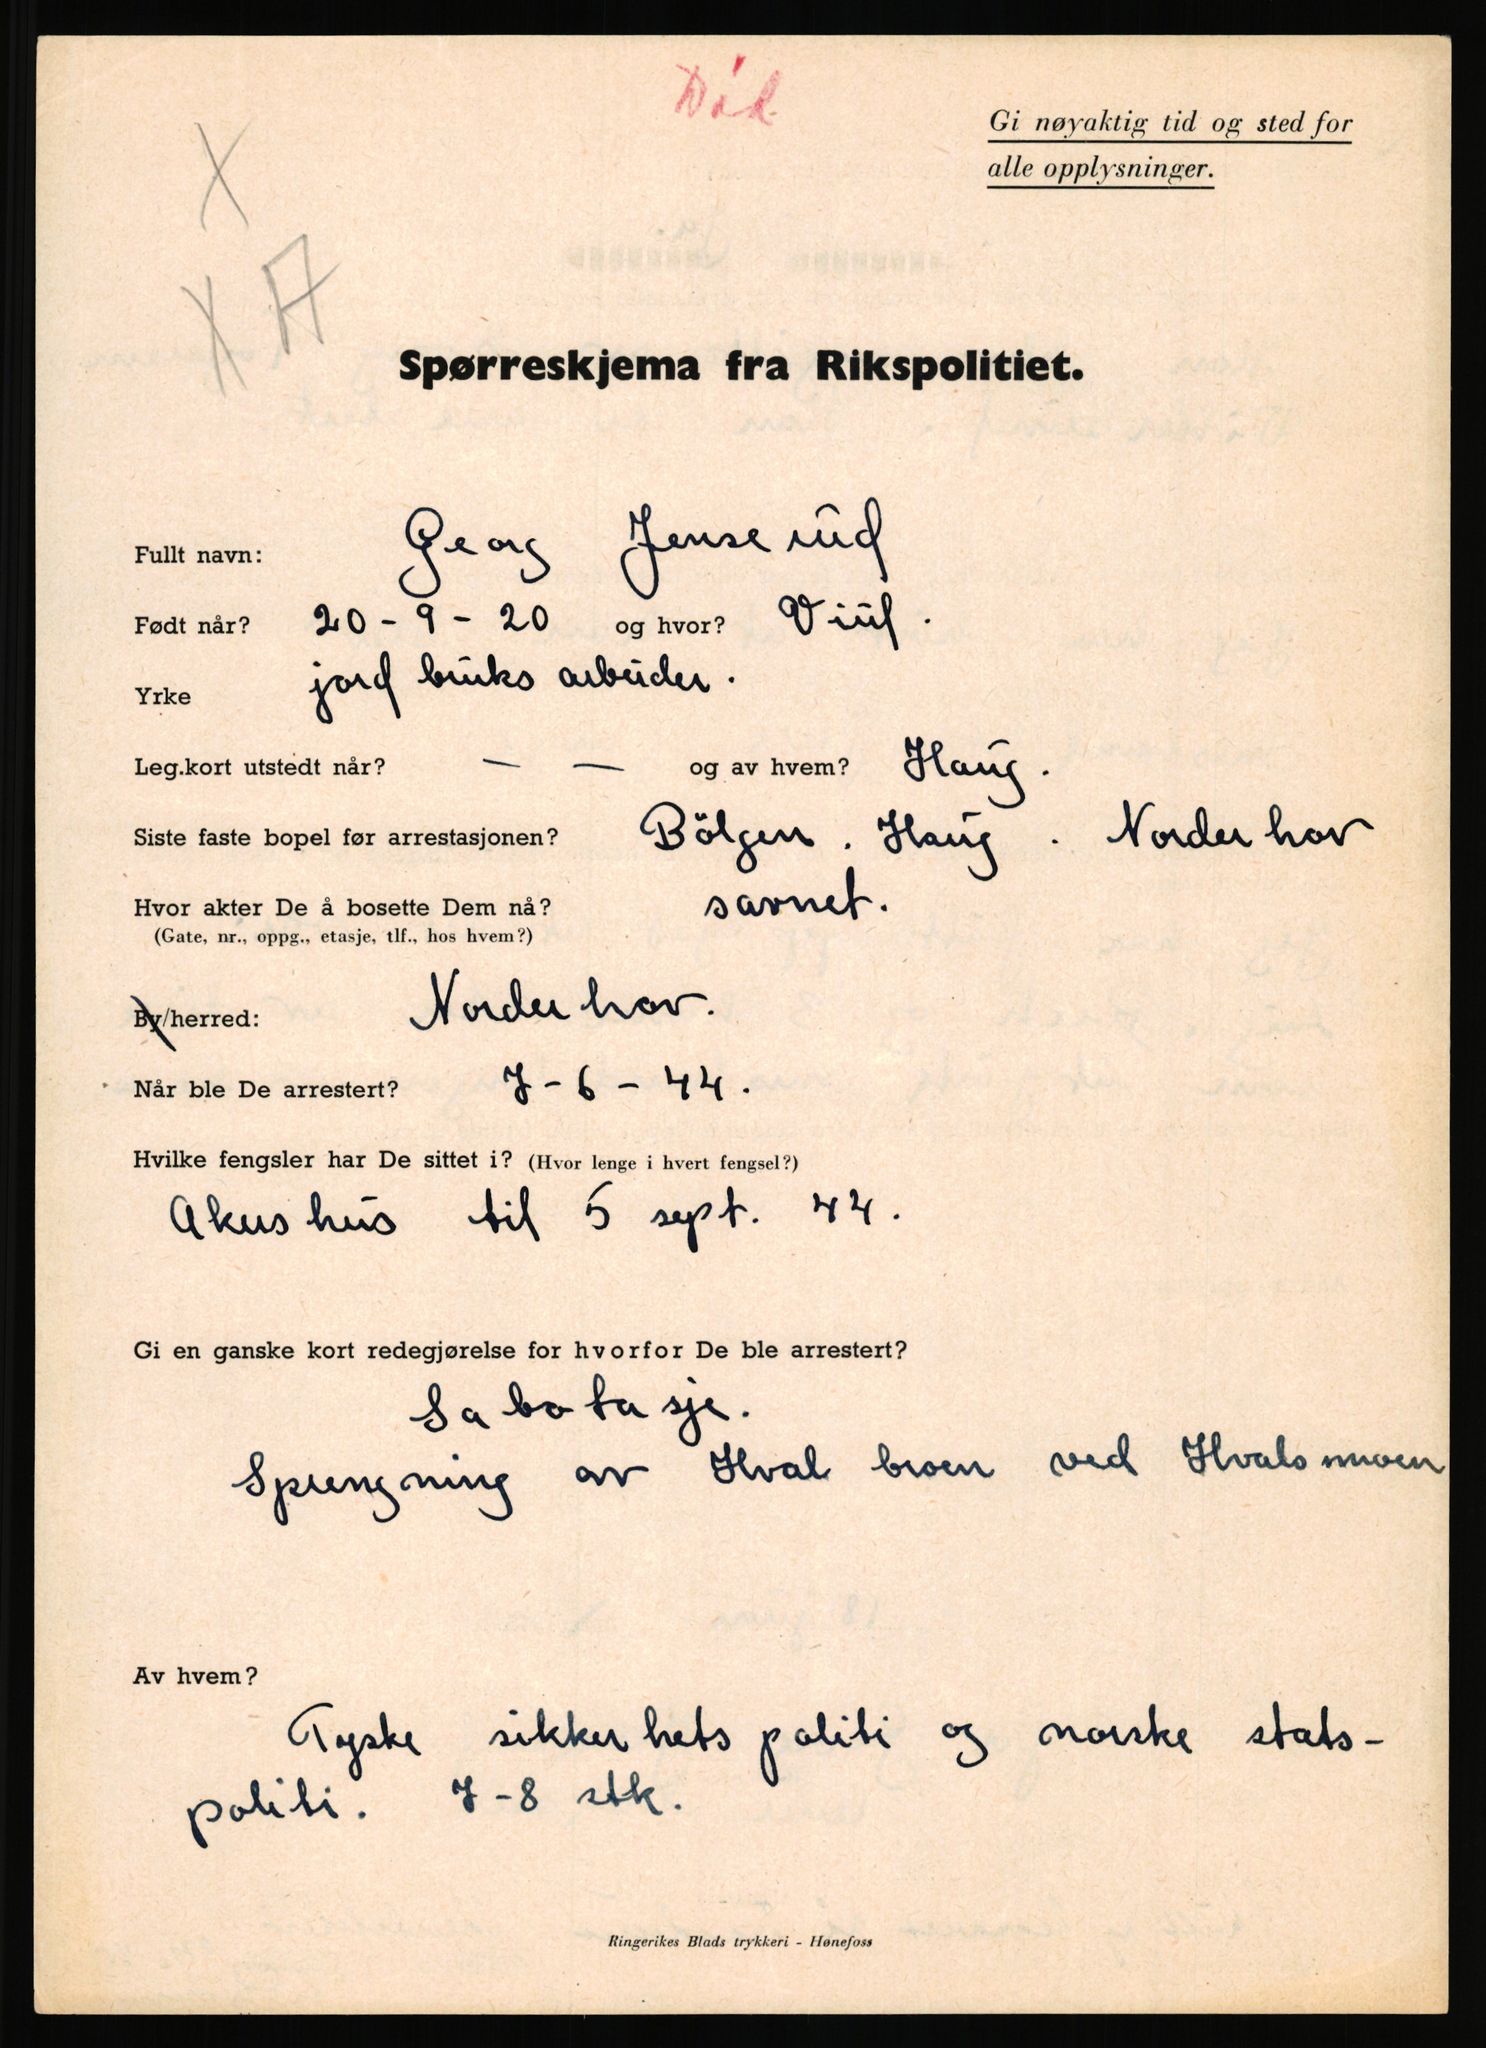 Død.
Gi nøyaktig tid og sted for
alle opplysninger.
X
X A
Spørreskjema fra Rikspolitiet.
Fullt navn: Georg Jenserud
Født når? 20 - 9 - 20 og hvor? Viul.
Yrke jordbruksarbeider.
Leg.kort utstedt når? — — og av hvem? Haug.
Siste faste bopel før arrestasjonen? Bölgen. Haug. Norderhov
Hvor akter De å bosette Dem nå? savnet.
(Gate, nr., oppg., etasje, tlf., hos hvem?)
By/herred: Norderhov.
Når ble De arrestert? 7 - 6 - 44.
Hvilke fengsler har De sittet i? (Hvor lenge i hvert fengsel?)
Akershus til 5 sept. 44.
Gi en ganske kort redegjørelse for hvorfor De ble arrestert?
Sabotasje.
Sprengning av Hval broen ved Hvalsmoen
Av hvem?
Tyske sikkerhetspoliti og norske stats-
politi. 7-8 stk.
Ringerikes Blads trykkeri - Hønefoss